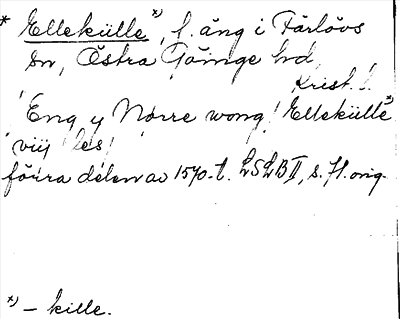 * Ellekülle *), f. äng i Färlövs
sn, Östra Göinge hd,
Krist. l.
"Eng y Nörre wong: Ellekülle"
viij les,
förra delen av 1570-t. LSLB II, s. 71. orig.
*) – kille.